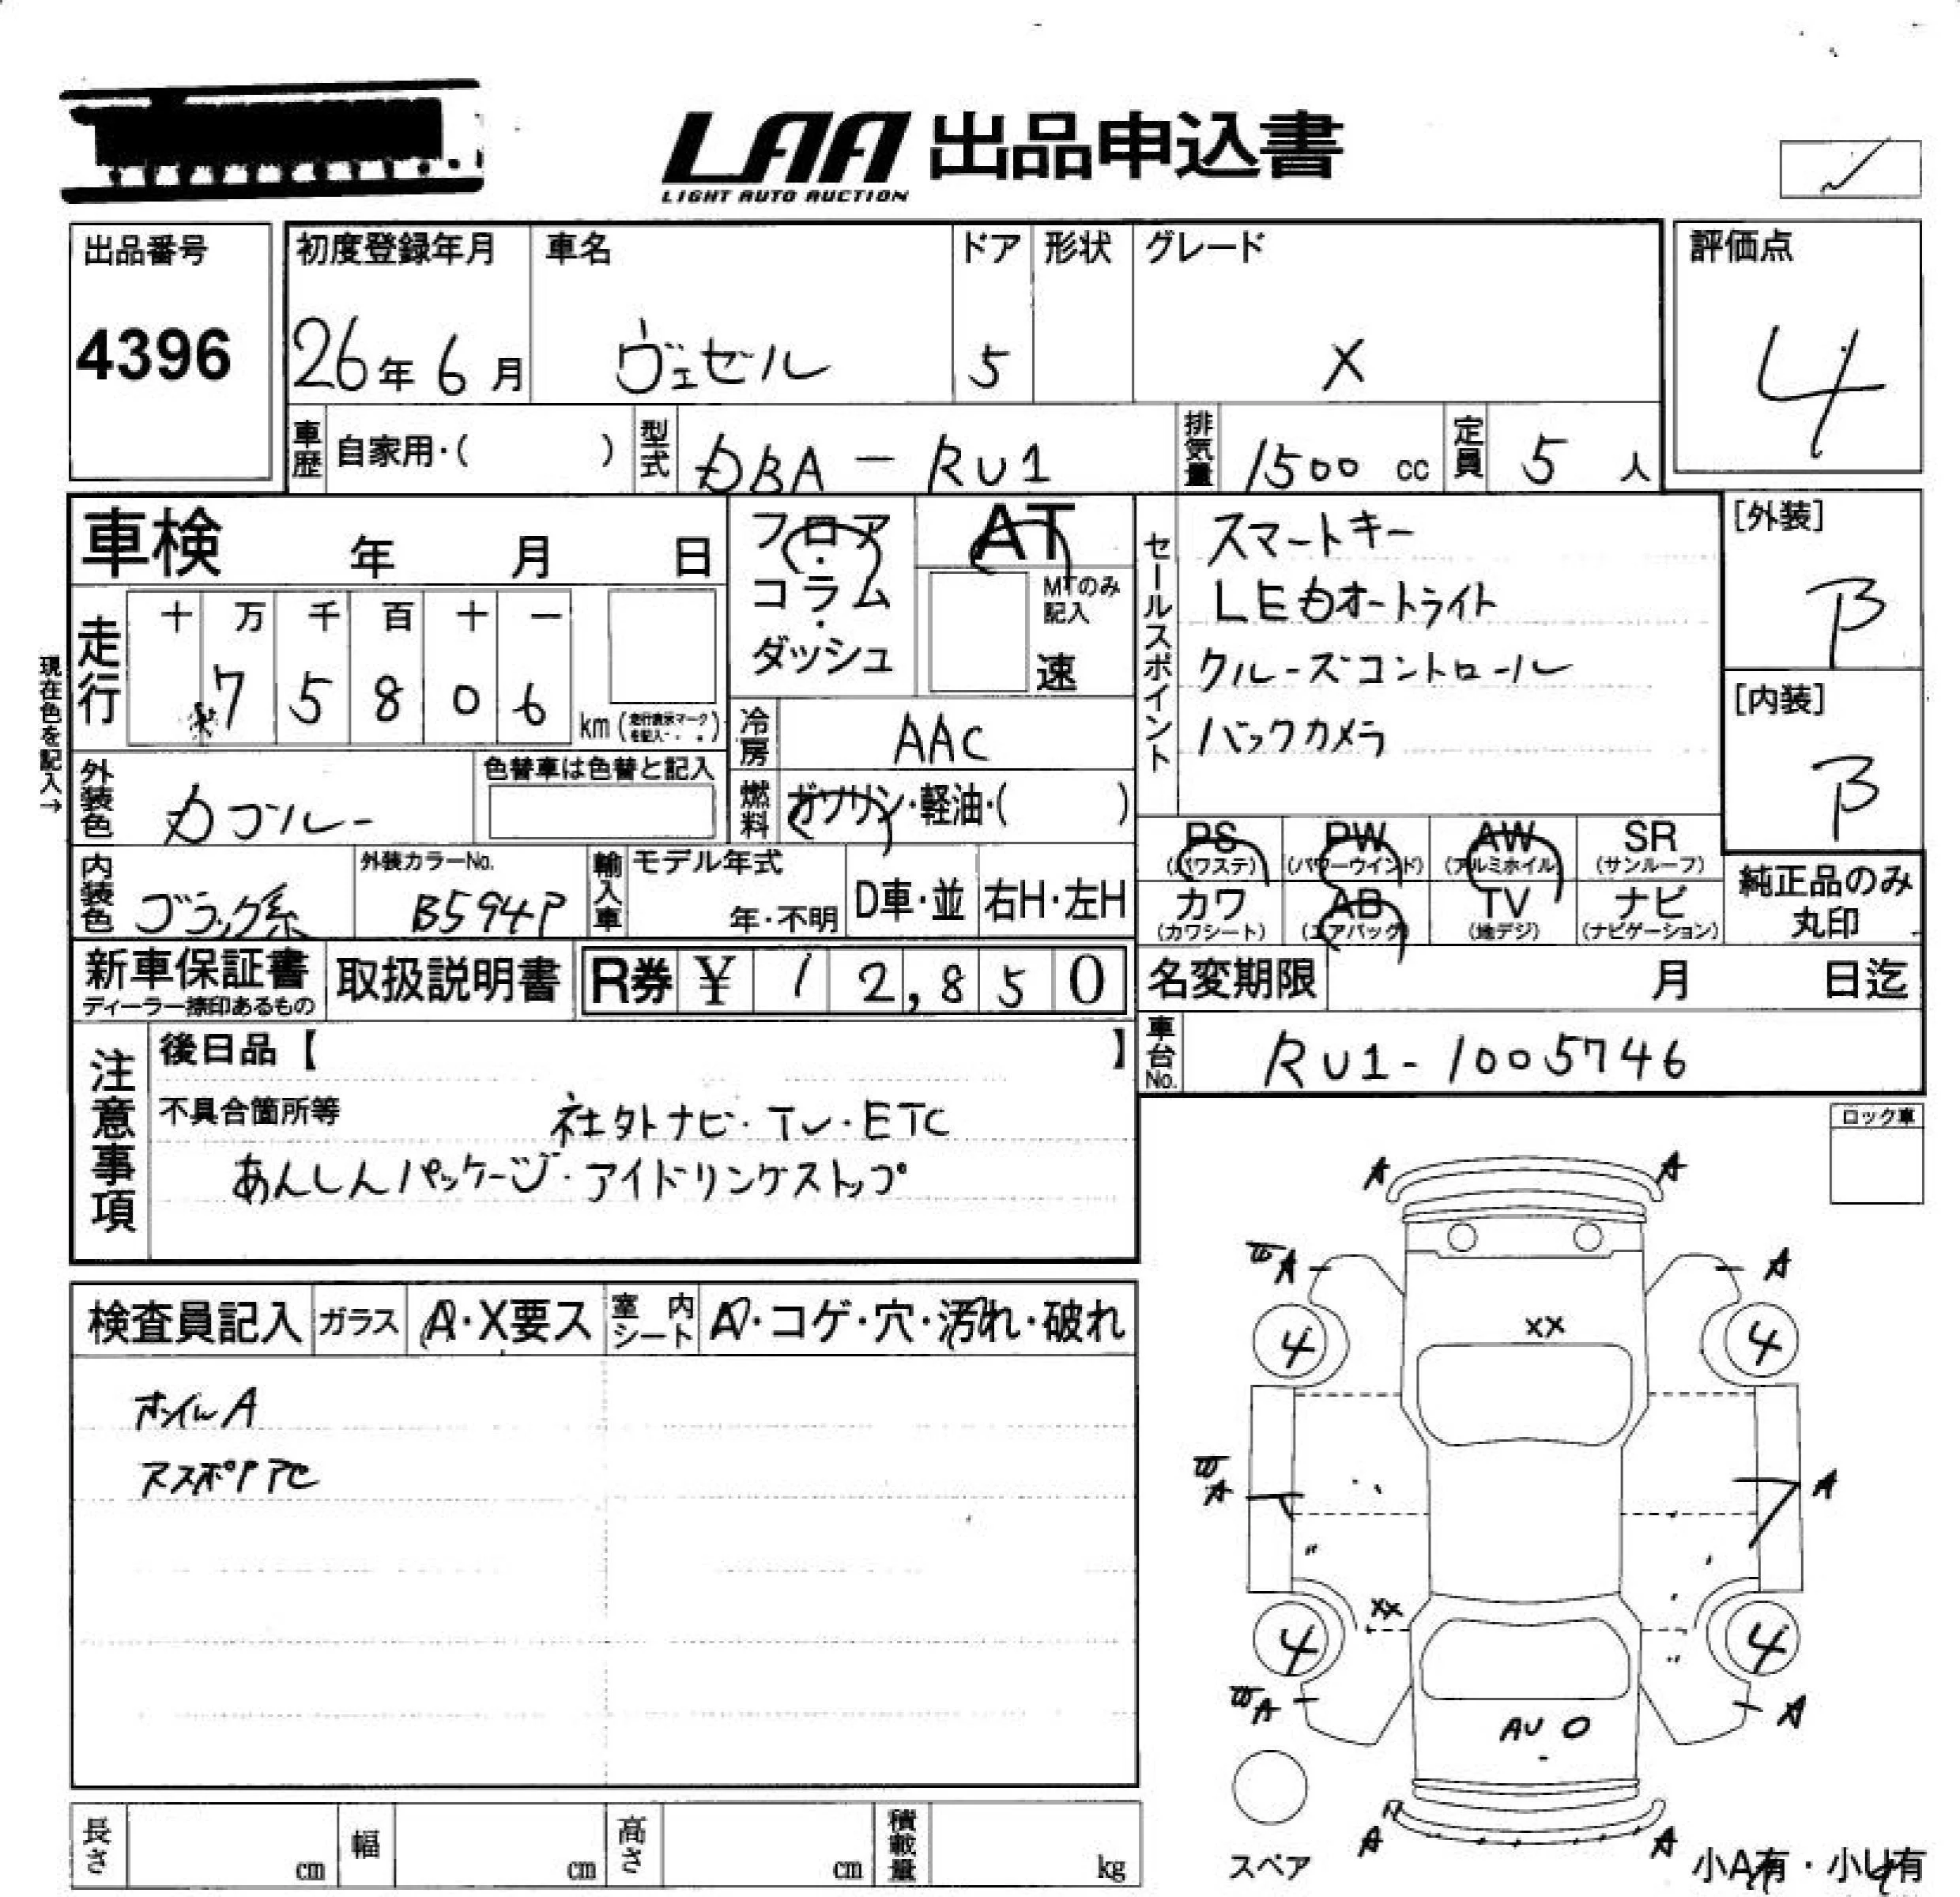 LAA 出品申込書
LIGHT AUTO AUCTION
出品番号
4396
初度登録年月
26年 6月
車名
ヴェゼル
ドア
5
形状
グレード
X
評価点
4
車歴 自家用・( )
型式 DBA-RU1
排気量 1500 cc
定員 5 人
車検 年 月 日
フロア・コラム・ダッシュ
AT
MTのみ記入
速
セールスポイント
スマートキー
LEDオートライト
クルーズコントロール
バックカメラ
[外装]
B
[内装]
B
現在色を記入→
走行
十 万 千 百 十 一
7 5 8 0 6
km (走行表示マークを記入)
冷房 AAC
外装色 Dブルー
色替車は色替と記入
燃料 ガソリン・軽油・( )
内装色 ブラック系
外装カラーNo.
B594P
輸入車
モデル年式
年・不明
D車・並
右H・左H
PS (パワステ)
PW (パワーウインド)
AW (アルミホイル)
SR (サンルーフ)
カワ (カワシート)
AB (エアバック)
TV (地デジ)
ナビ (ナビゲーション)
純正品のみ丸印
新車保証書
ディーラー捺印あるもの
取扱説明書
R券 ¥ 12,850
名変期限 月 日迄
車台No. RU1-1005746
注意事項
後日品【 】
不具合箇所等
社外ナビ・TV・ETC
あんしんパッケージ・アイドリングストップ
ロック車
検査員記入
ガラス A・X要ス
室内シート A・コゲ・穴・汚れ・破れ
ホイルA
A A
A A
4 XX 4
A A
XX
4 4
A A
AU
A A
スペア
小A有・小U有
長さ cm
幅 cm
高さ cm
積載量 kg